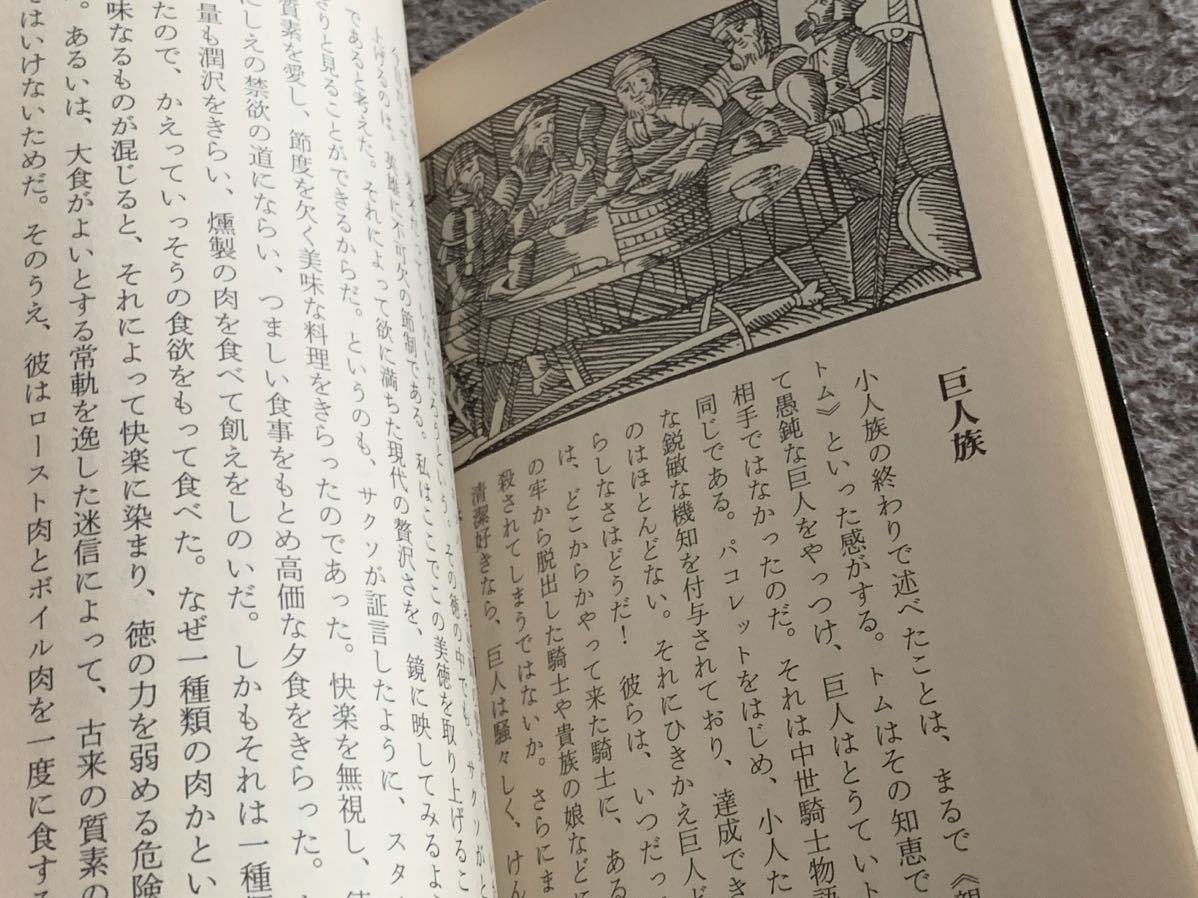 巨人族
小人族の終わりで述べたことは、まるで《親
トム》といった感がする。トムはその知恵で
て愚鈍な巨人をやっつけ、巨人はとうていト
相手ではなかったのだ。それは中世騎士物語
同じである。パコレットをはじめ、小人た
な鋭敏な機知を付与されており、達成でき
のはほとんどない。それにひきかえ巨人ど
らしなさはどうだ! 彼らは、いつだっ
は、どこからかやって来た騎士に、ある
の牢から脱出した騎士や貴族の娘などに
殺されてしまうではないか。さらにま
清潔好きなら、巨人は騒々しく、けん
上げるのは、英雄に不可欠の節制である。私はここでこの美徳を取り上げるこ
であると考えた。それによって欲に満ちた現代の贅沢さを、鏡に映してみるよ
きりと見ることができるからだ。というのも、サクソが証言したように、スタ
質素を愛し、節度を欠く美味な料理をきらったのであった。快楽を無視し、
にしえの禁欲の道にならい、つましい食事をもとめ高価な夕食をきらった。
量も潤沢をきらい、燻製の肉を食べて飢えをしのいだ。しかもそれは一種
たので、かえっていっそうの食欲をもって食べた。なぜ一種類の肉かとい
味なるものが混じると、それによって快楽に染まり、徳の力を弱める危険
る。あるいは、大食がよいとする常軌を逸した迷信によって、古来の質素の
はいけないためだ。そのうえ、彼はロースト肉とボイル肉を一度に食する